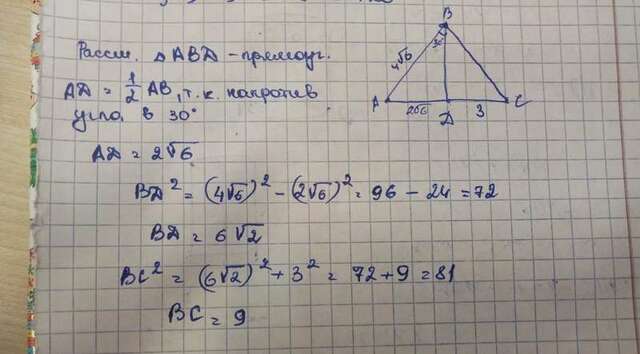 Рассм. △ ABD - прямоуг.
AD = 1/2 AB, т.к. напротив
угла в 30°
AD = 2√6
BD² = (4√6)² - (2√6)² = 96 - 24 = 72
BD = 6√2
BC² = (6√2)² + 3² = 72 + 9 = 81
BC = 9
B
4√6
30
A
2√6
D
3
C